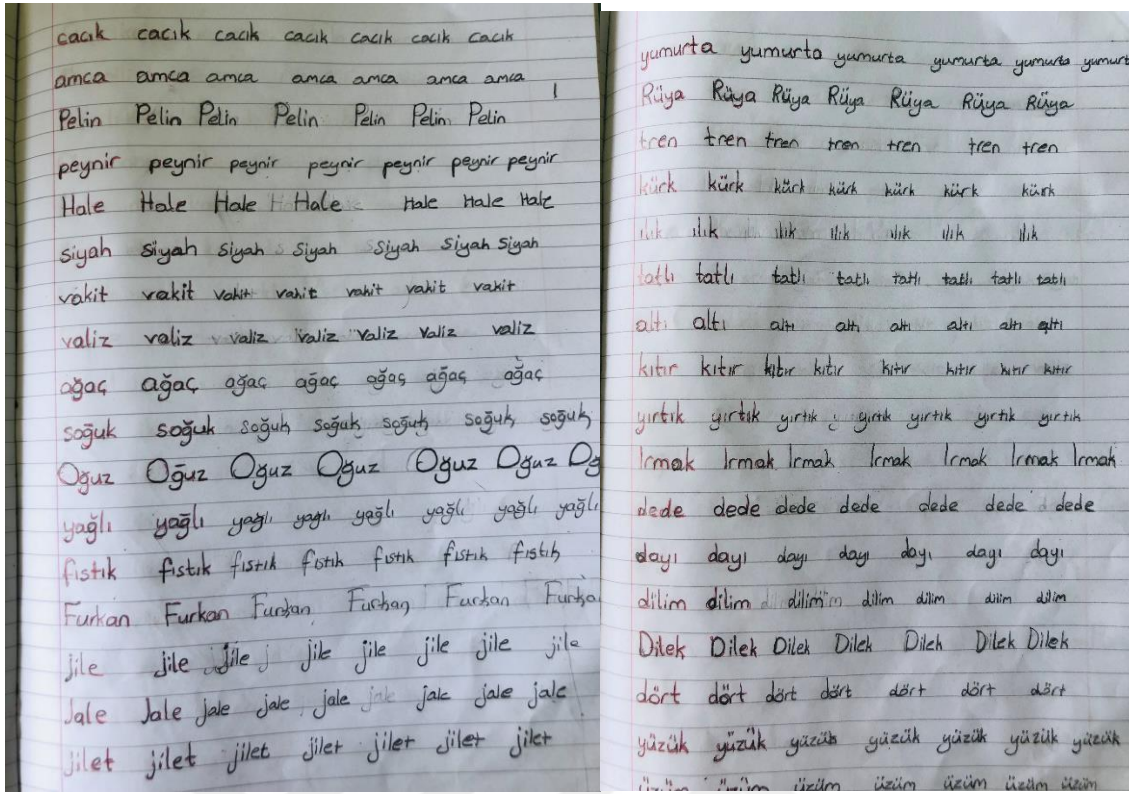 cacık cacık cacık cacık cacık cacık cacık
amca amca amca amca amca amca amca
Pelin Pelin Pelin Pelin Pelin Pelin Pelin
peynir peynir peynir peynir peynir peynir peynir
Hale Hale Hale Hale Hale Hale Hale
siyah siyah siyah siyah siyah siyah siyah
vakit vakit vakit vakit vakit vakit vakit
valiz valiz valiz valiz valiz valiz valiz
ağaç ağaç ağaç ağaç ağaç ağaç ağaç
soğuk soğuk soğuk soğuk soğuk soğuk soğuk
Oğuz Oğuz Oğuz Oğuz Oğuz Oğuz Oğ
yağlı yağlı yağlı yağlı yağlı yağlı yağlı yağlı
fıstık fıstık fıstık fıstık fıstık fıstık fıstık
Furkan Furkan Furkan Furkan Furkan Furka
jile jile jile jile jile jile jile jile
Jale Jale jale jale jale jale jale jale
jilet jilet jilet jilet jilet jilet jilet
yumurta yumurta yumurta yumurta yumurta yumurt
Rüya Rüya Rüya Rüya Rüya Rüya Rüya
tren tren tren tren tren tren tren
kürk kürk kürk kürk kürk kürk kürk
ılık ılık ılık ılık ılık ılık ılık
tatlı tatlı tatlı tatlı tatlı tatlı tatlı tatlı
altı altı altı altı altı altı altı altı
kıtır kıtır kıtır kıtır kıtır kıtır kıtır kıtır
yırtık yırtık yırtık yırtık yırtık yırtık yırtık
Irmak Irmak Irmak Irmak Irmak Irmak Irmak
dede dede dede dede dede dede dede
dayı dayı dayı dayı dayı dayı dayı
dilim dilim dilim dilim dilim dilim dilim
Dilek Dilek Dilek Dilek Dilek Dilek Dilek
dört dört dört dört dört dört dört
yüzük yüzük yüzük yüzük yüzük yüzük yüzük
üzüm üzüm üzüm üzüm üzüm üzüm üzüm